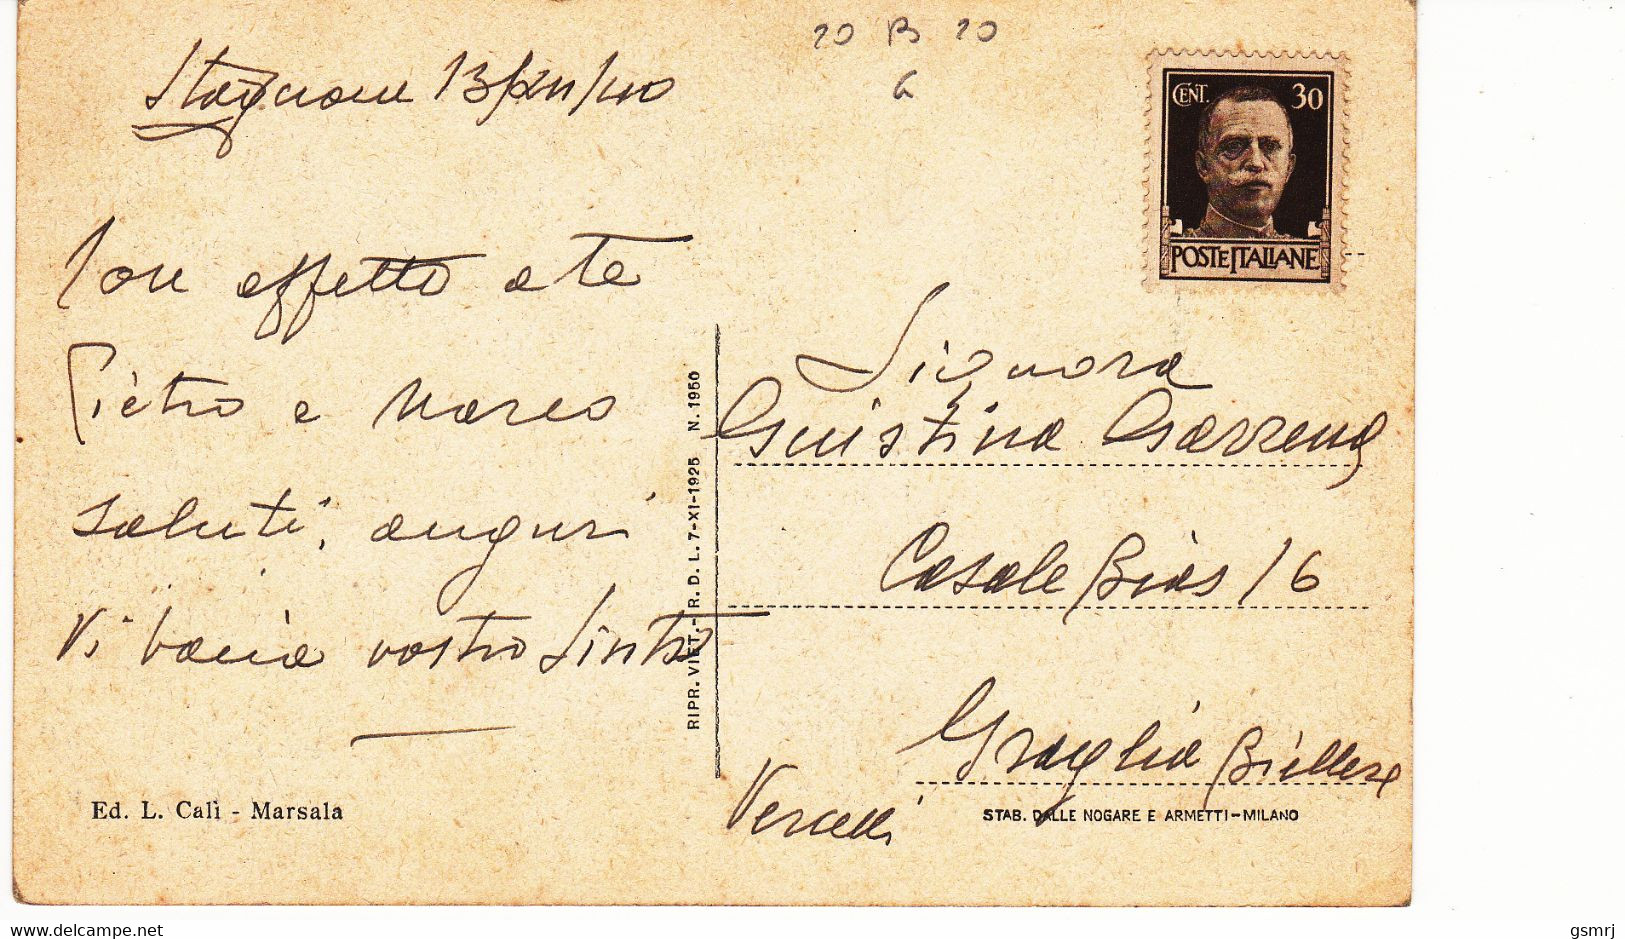 20 B 20
G
Stazione 13/XII/40
CENT. 30
POSTE ITALIANE
Con affetto a te
Pietro e Marco
saluti, auguri
Vi bacia vostro
Signora
Giustina
Casale Bias 16
Graglia Biellese
Vercelli
RIPR. VIET. - R. D. L. 7-XI-1925 N. 1950
Ed. L. Calì - Marsala
STAB. DALLE NOGARE E ARMETTI-MILANO
delcampe.net
gsmrj